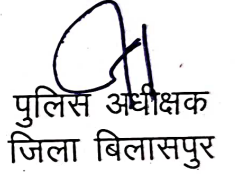 पुलिस अधीक्षक
जिला बिलासपुर